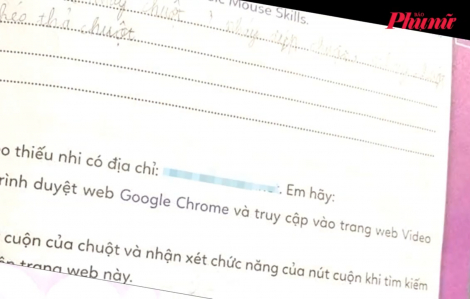 Mouse Skills.
BÁO
Phunữ
kéo thả chuột
thiếu nhi có địa chỉ: . Em hãy:
duyệt web Google Chrome và truy cập vào trang web Video
cuộn của chuột và nhận xét chức năng của nút cuộn khi tìm kiếm
trang web này.